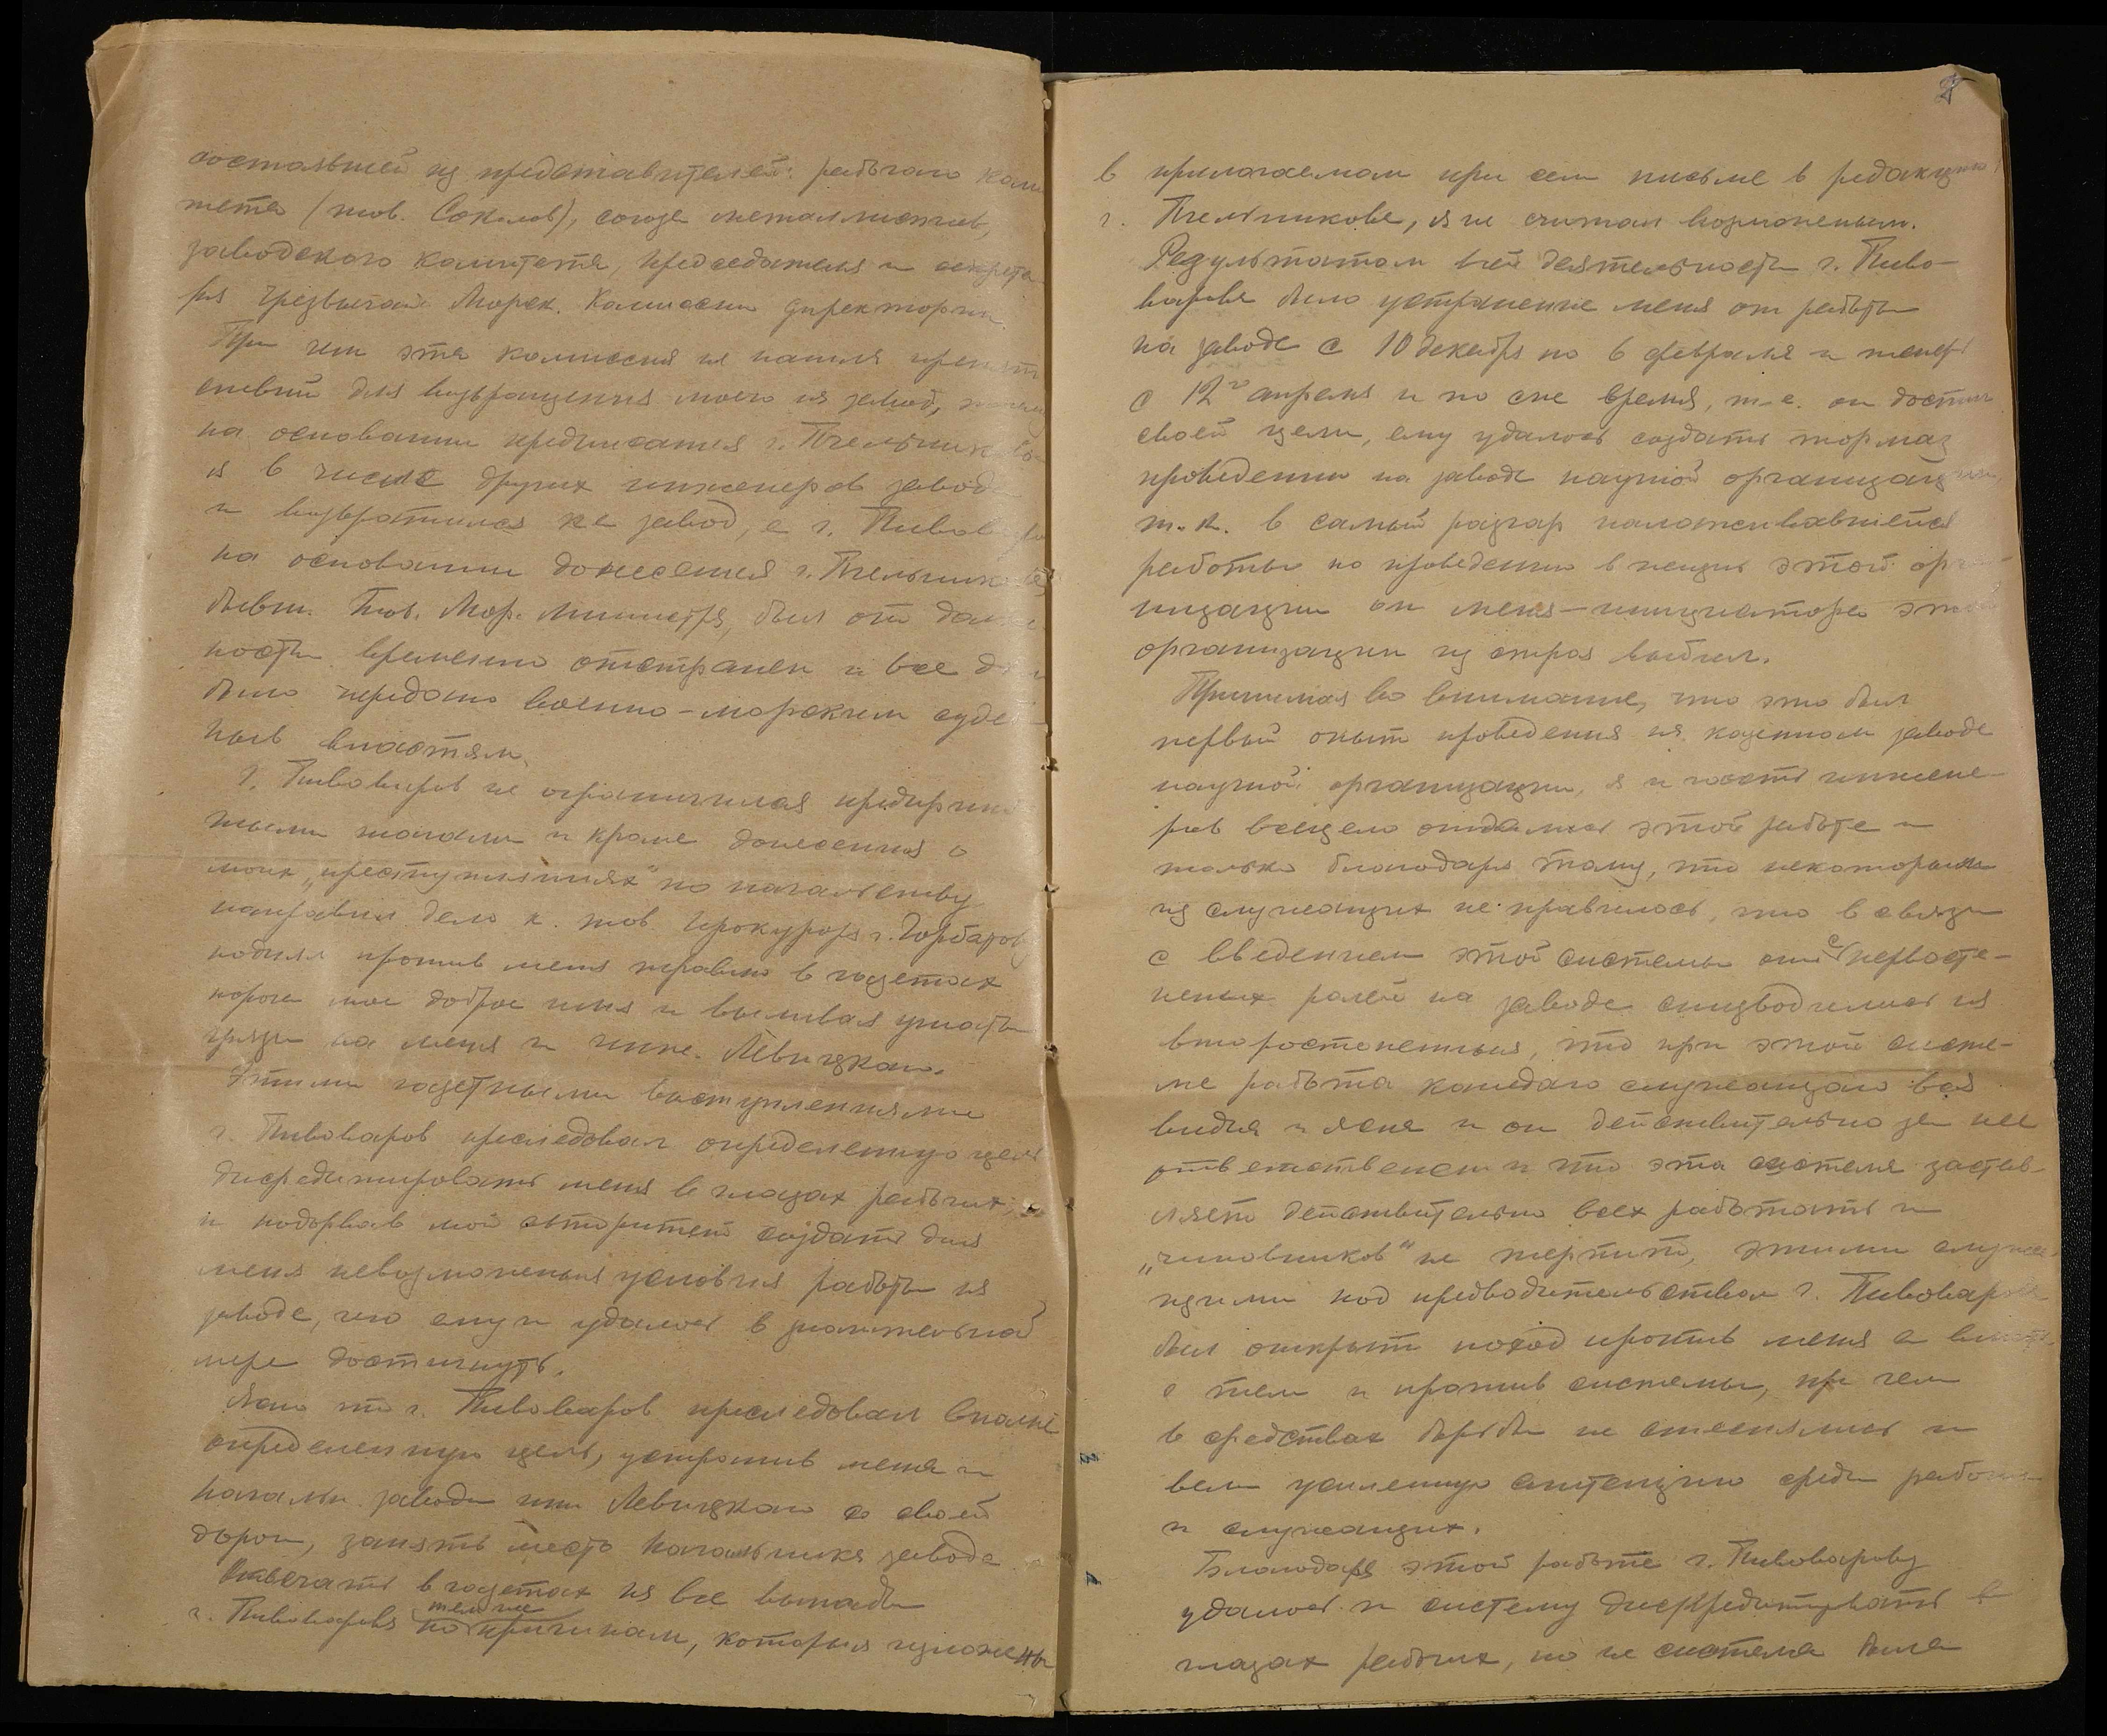 состоявшей из представителей: рабочаго коми
тета (тов. Соколов), союза металлистов,
заводского комитета, председателя и секрета
ря Чрезвычай. Морск. Комиссии директории.
При чем эта комиссия не нашла препят
ствий для возвращения моего на завод,
на основании предписания г. Пчельникова
я в числе других инженеров завода
и возвратился на завод, а г. Пивоваров
на основании донесения г. Пчельникова
бывш. Тов. Мор. Министра, был от долж
ности временно отстранен и все дело
было передано военно-морским судеб
ным властям.
Г. Пивоваров не ограничился предприня
тыми шагами и кроме донесения о
моих „преступлениях" по начальству
направил дело к тов. прокурора г. Горбатову
поднял против меня травлю в газетах
пороча мое доброе имя и выливая ушаты
грязи на меня и инж. Левицкаго.
Этими газетными выступлениями
г. Пивоваров преследовал определенную цель
дискредитировать меня в глазах рабочих,
и подорвав мой авторитет создать для
меня невозможныя условия работы на
заводе, что ему и удалось в значительной
мере достигнуть.
Ясно что г. Пивоваров преследовал вполне
определенную цель, устранив меня и
начальн. завода инж Левицкаго со своей
дороги, занять место начальника завода
Отвечать в газетах на все выпады
г. Пивоварова по тем же причинам, которыя изложены
в прилагаемом при сем письме в редакцию
г. Пчельникове, я не считал возможным.
Результатом всей деятельности г. Пиво-
варова было устранение меня от работы
на заводе с 10 декабря по 6 февраля и теперь
с 12го апреля и по сие время, т.е. он достиг
своей цели, ему удалось создать тормаз
проведению на заводе научной организации,
т.к. в самый разгар налаживавшейся
работы по проведению в жизнь этой орга-
низации он меня-инициатора этой
организации из строя выбил.
Принимая во внимание, что это был
первый опыт проведения на казенном заводе
научной организации, я и часть инжене-
ров всецело отдались этой работе и
только благодаря тому, что некоторым
из служащих не нравилось, что в связи
с введением этой системы они с первосте-
пенных ролей на заводе снизводились на
второстепенныя, что при этой систе-
ме работа каждаго служащаго вся
видна и ясна и он действительно за нее
ответственен и что эта система застав-
ляет действительно всех работать и
„чиновников" не терпит, этими служа-
щими под предводительством г. Пивоварова
был открыт поход против меня а вместе
с тем и против системы, при чем
в средствах борьбы не стеснялись и
вели усиленную агитацию среди рабочих
и служащих.
Благодаря этой работе г. Пивоварову
удалось и систему дискредитировать в
глазах рабочих, но не система была